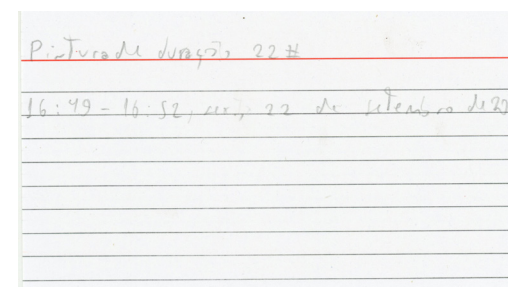 Pintura de duração 22 #
16:49 - 16:52, 22 de setembro de 22